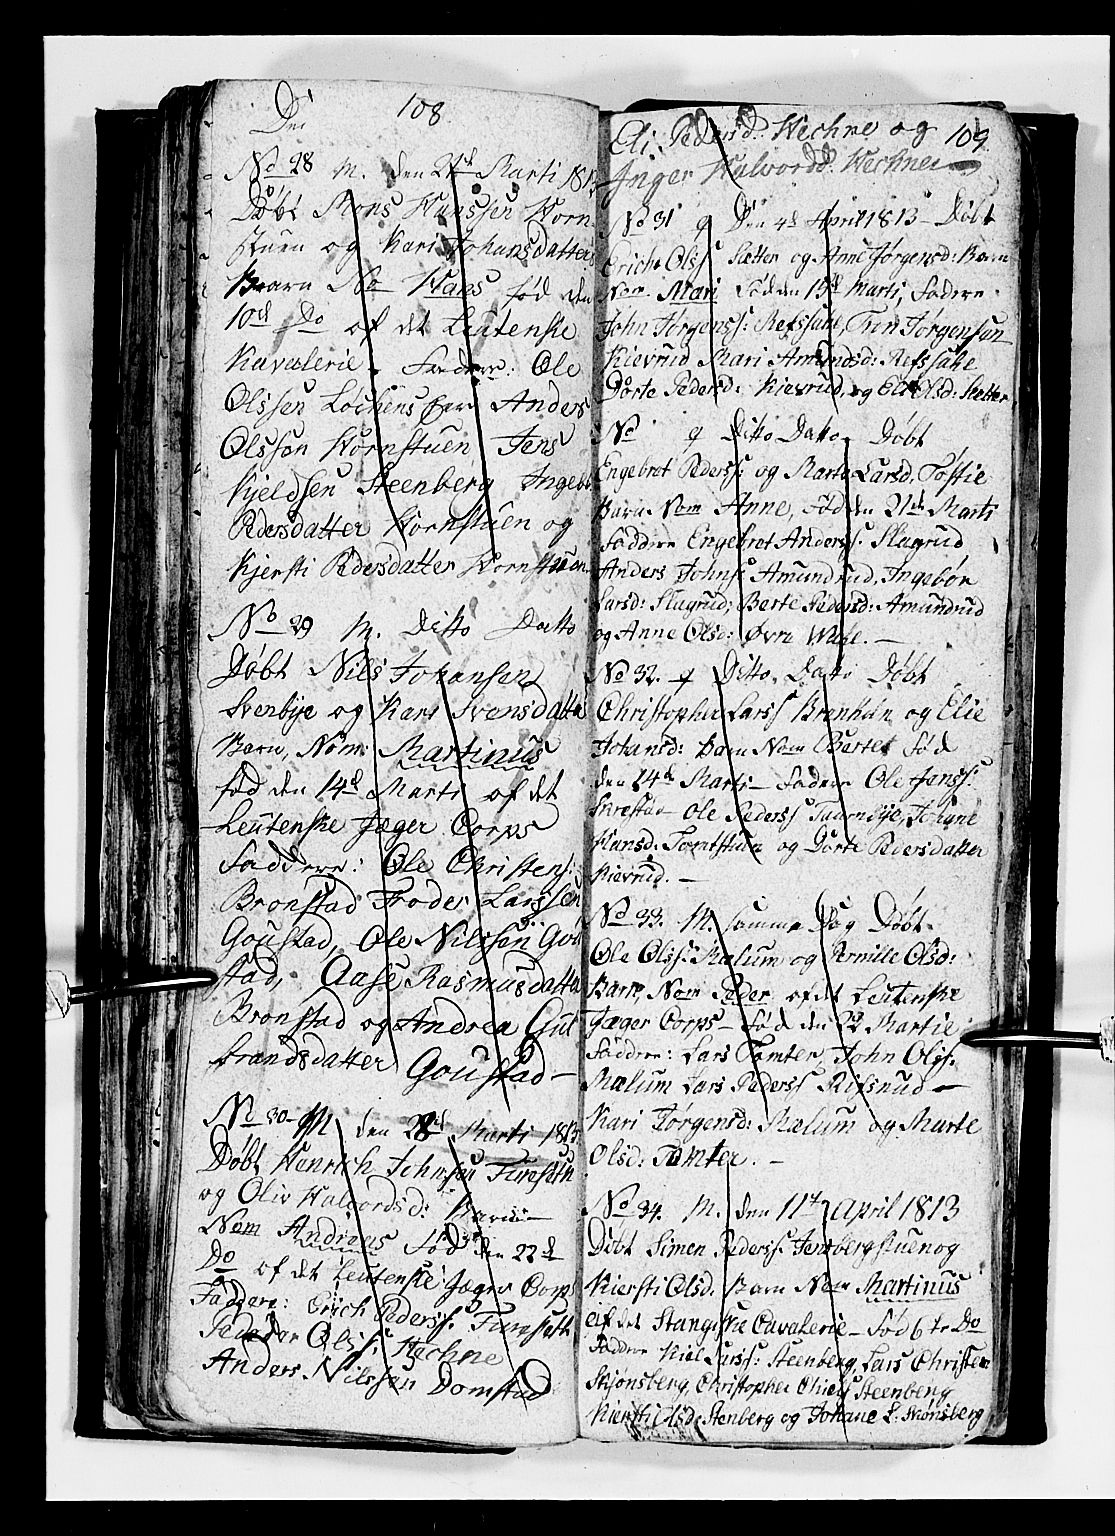 108
No 28 M. den 21de Marti 181
Døbt Mons Hanssen Korn
stuen og Kari Johansdatters
Barn No Hans fød den
10de Do af det Leutenske
Kavalerie. Faddere: Ole
Olssen Løckens Anders
Olsson Kornstuen Jens
Kjeldsen Steenberg Ingeb
Pedersdatter Kornstuen og
Kjersti Pedersdatter Kornstuen
No 29 M. Ditto Datto
Døbt Nils Johansen
Svenbye og Kari Svensdatter
Barn, Nom: Martinus
fød den 14de Marti af det
Leutenske Jæger Corps
Faddere: Ole Christens:
Bronstad Froder Larssen
Goustad, Ole Nilsson Gou
stad, Aase Rasmusdatter
Bronstad og Andrea Gul
brandsdatter Goustad —
No 30 M den 28de Marti 1813
Døbt Henrich Johnsen Furesetn
og Oliv Halvordsd: Barn
Nom Andreas fød den 22de
Do af det Leutenske Jæger Corps
Faddere: Erich Pederss: Furesett
Peder Olss: Hechne
Anders Nilssen Domstad
109
Eli Pedersd. Hechne og
Inger Halvordd. Hechne
No 31 q Den 4de April 1813 — Døbt
Erich Olss Sætter og Anne Jørgensd: Barn
Nom Mari Fød den 15de Marti, Faddere
John Jørgenss: Refssahl, Tron Jørgensen
Kievrud Mari Amundsd: Refssahl
Dorte Pedersd: Kievrud, og Eli Olsd: Sætter
No q Ditto Datto Døbt
Engebret Pederss: og Marte Larsd. Tøstie
Barn Nom Anne, Fød den 21de Marti
Faddere Engebret Anderss: Slagrud
Anders Johns: Amundrud, Ingebør
Larsd: Slagrud; Berte Pedersd: Amundrud
og Anne Olsd: Øvre —
No 32. q Ditto Datto Døbt
Christopher Larss Brenheln og Elie
Johansd: Barn Nom Bertet fød
den 24de Marti — Faddere Ole Jenss:
Ole Pederss Johane
Hansd: Tomtstuen og Dorte Pedersdatter
Kievrud. —
No 33. M. samme Dag Døbt
Ole Olss: Mælum og Pernille Olsd:
Barn, Nom Peder af det Leutenske
Jæger Corps — Fød den 22 Martie
Faddere: Lars Tomter, John Olss.
Mælum Lars Pederss Rifsnud —
Kari Jørgensd: Mælum og Marte
Olsd: Tomter. —
No 34. M. den 11te April 1813
Døbt Simen Pederss: Jensbergstuen og
Kiersti Olsd. Barn Nom Martinus
af det Stangiske Cavalerie — Fød 6te Do
Faddere Kiel Larss: Steenberg, Lars Christen
Skjønsberg, Christopher Chiels Steenberg
Kiersti Olsd: Stenberg og Johane L: Skønsberg